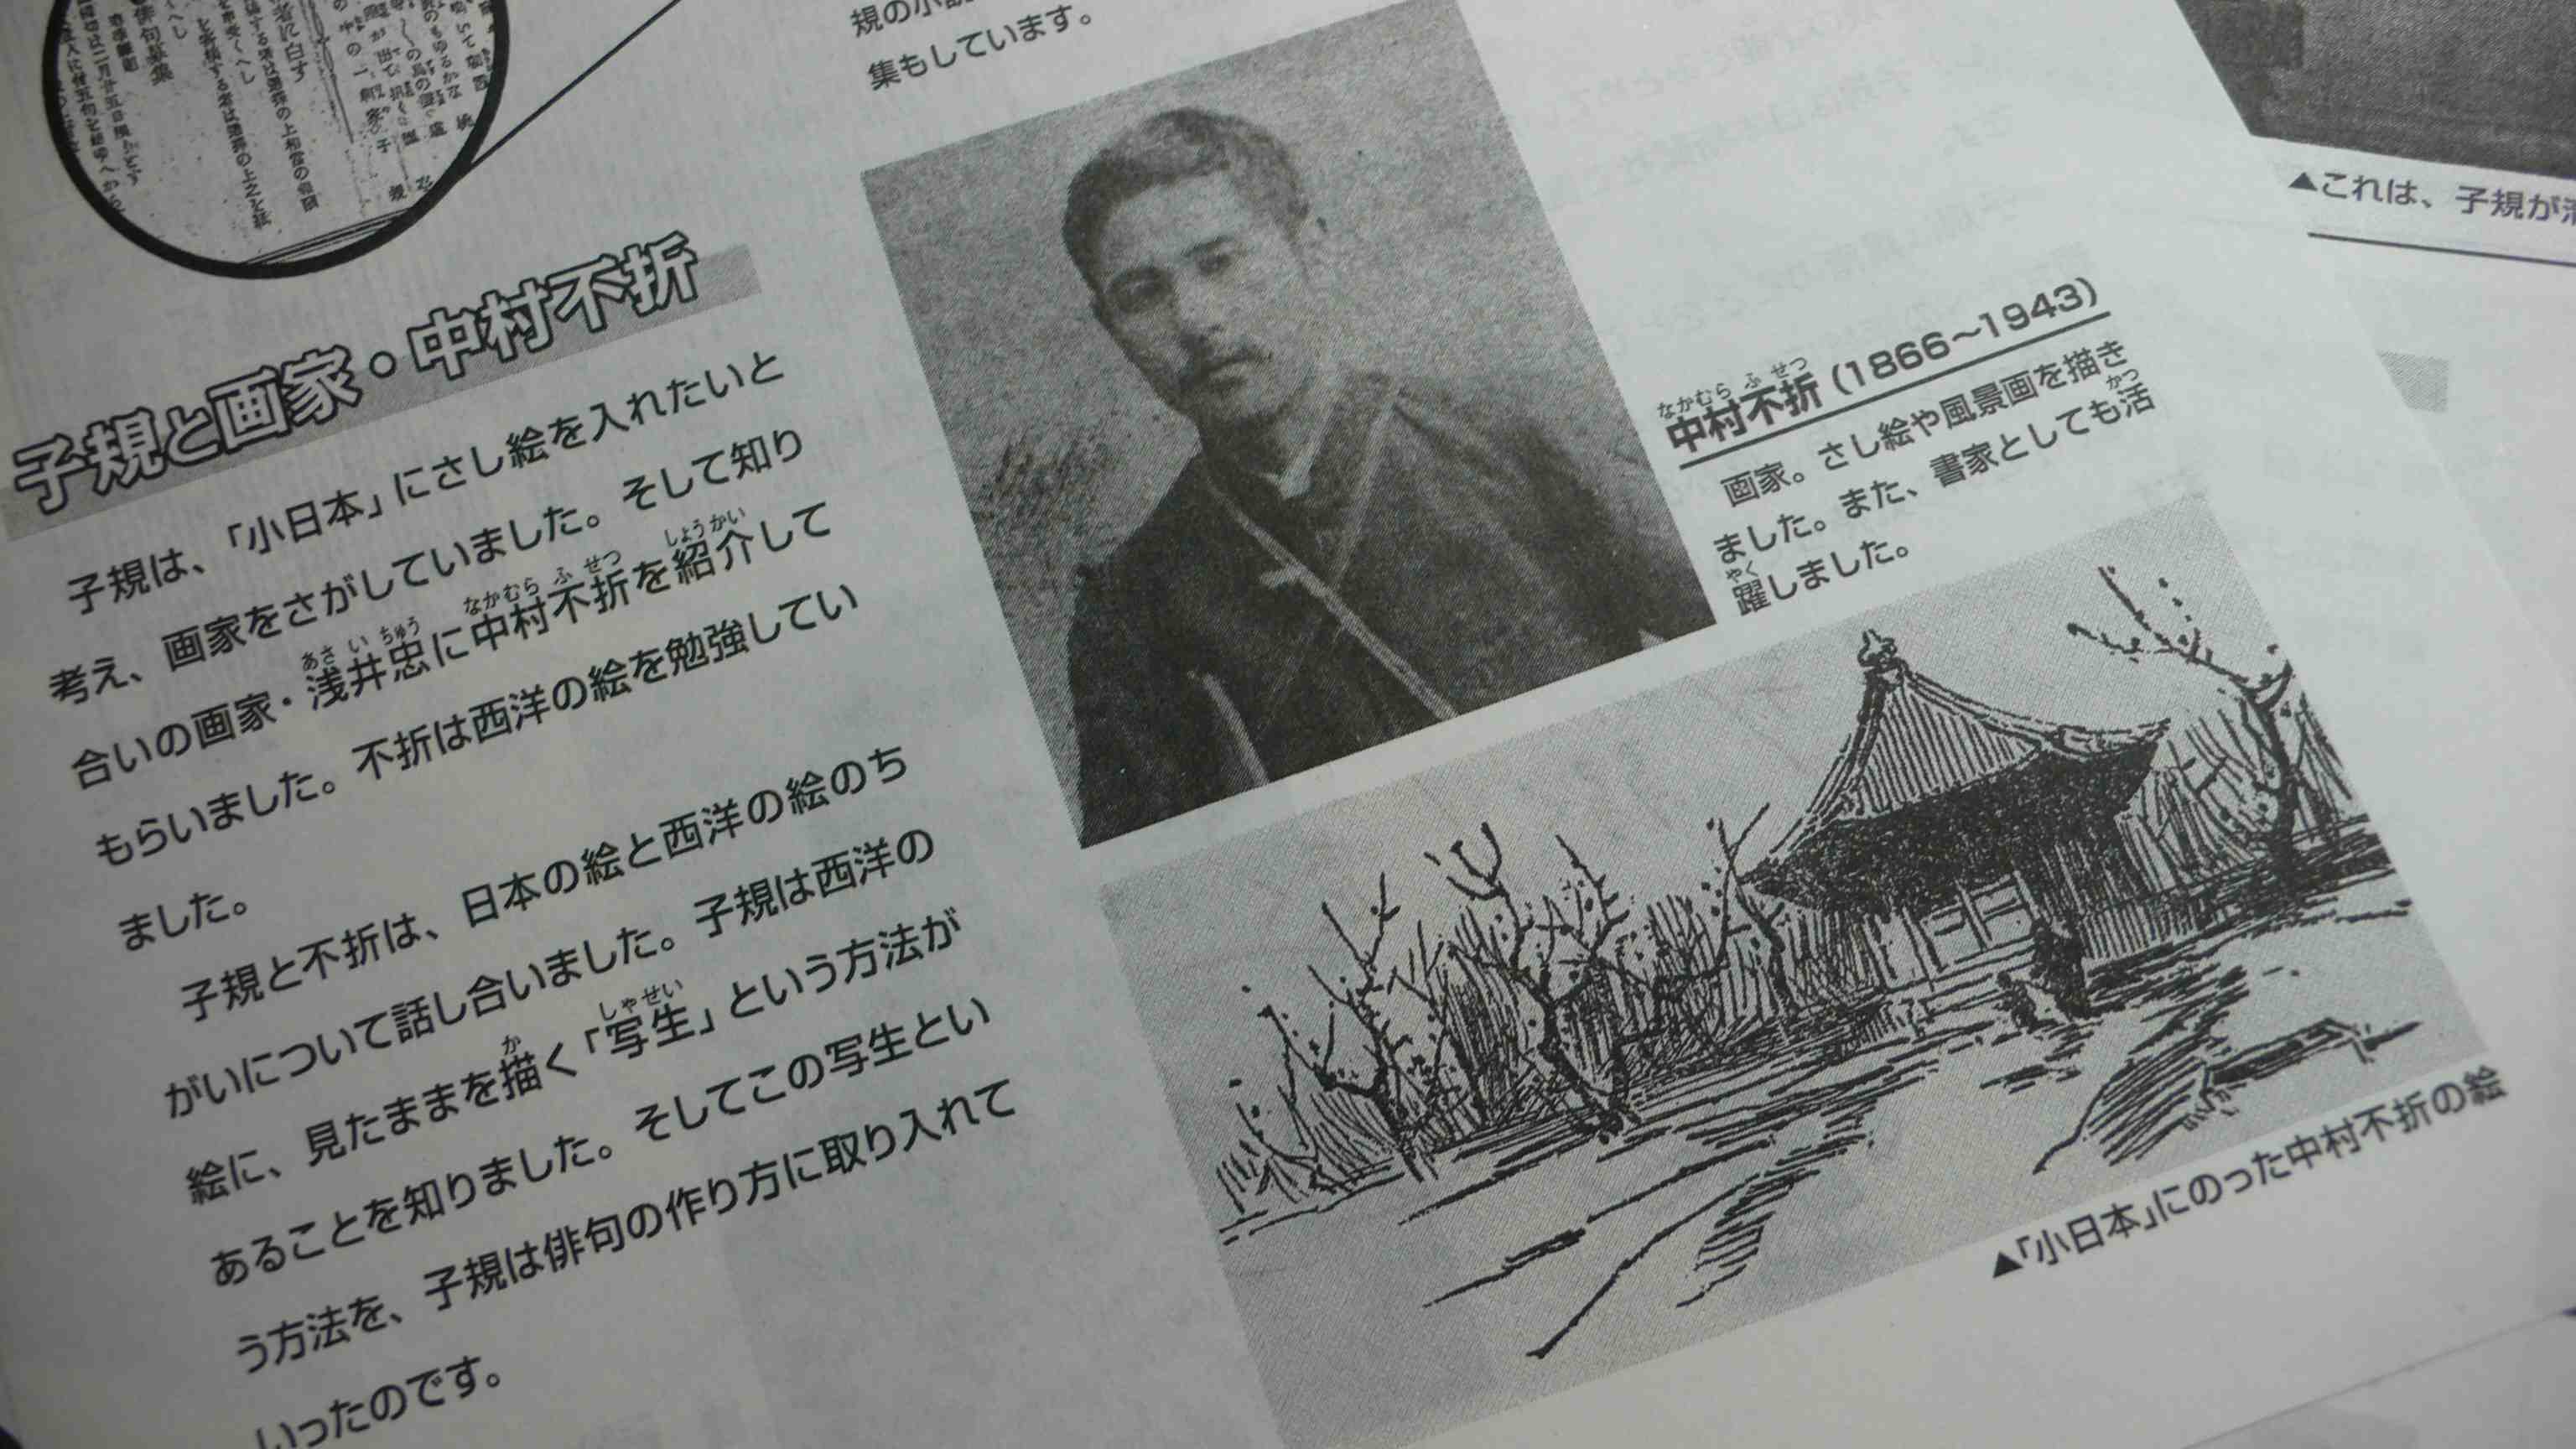 集もしています。
子規と画家・中村不折
子規は、「小日本」にさし絵を入れたいと
考え、画家をさがしていました。そして知り
合いの画家・浅井忠に中村不折を紹介して
もらいました。不折は西洋の絵を勉強してい
ました。
子規と不折は、日本の絵と西洋の絵のち
がいについて話し合いました。子規は西洋の
絵に、見たままを描く「写生」という方法が
あることを知りました。そしてこの写生とい
う方法を、子規は俳句の作り方に取り入れて
いったのです。
中村不折(1866～1943)
画家。さし絵や風景画を描き
ました。また、書家としても活
躍しました。
▲「小日本」にのった中村不折の絵
▲これは、子規が